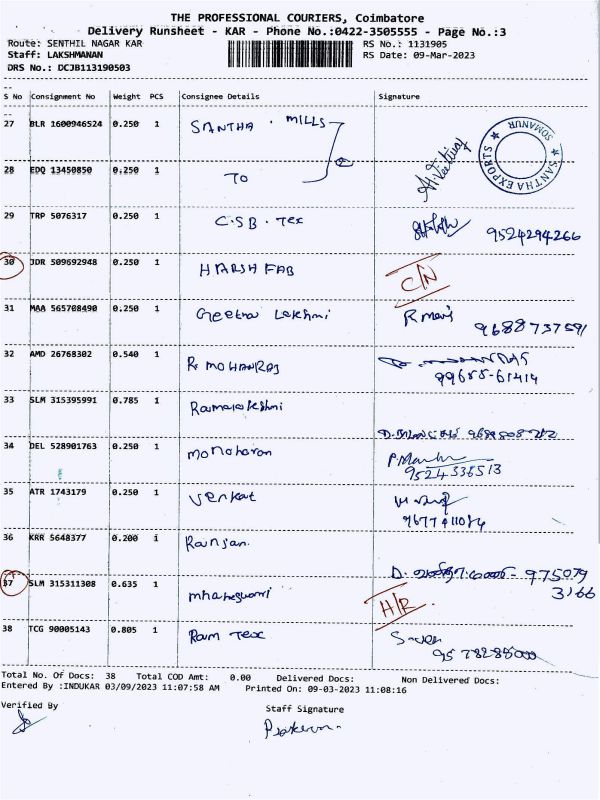 THE PROFESSIONAL COURIERS, Coimbatore
Delivery Runsheet - KAR - Phone No.:0422-3505555 - Page No.:3
Route: SENTHIL NAGAR KAR RS No.: 1131905
Staff: LAKSHMANAN RS Date: 09-Mar-2023
DRS No.: DCJB113190503
S No Consignment No Weight PCS Consignee Details Signature
27 BLR 1600946524 0.250 1 SANTHA . MILLS
SANTHA EXPORTS SOMANUR
28 EDQ 13450850 0.250 1 TO
29 TRP 5076317 0.250 1 C.S.B. Tex 9524294266
30 JDR 509692948 0.250 1 HARSH FAB C/N
31 MAA 565708490 0.250 1 Geetha Lakshmi R Mani
9688737591
32 AMD 26768302 0.540 1 R. MOHANRAJ
99655-61414
33 SLM 315395991 0.785 1 Ramalakshmi
34 DEL 528901763 0.250 1 Manoharan
9524336513
35 ATR 1743179 0.250 1 Venkat
36 KRR 5648377 0.200 1 Ranjan.
975079
3166
37 SLM 315311308 0.635 1 H/R.
38 TCG 90005143 0.805 1 Ram Tex
Total No. Of Docs: 38 Total COD Amt: 0.00 Delivered Docs: Non Delivered Docs:
Entered By :INDUKAR 03/09/2023 11:07:58 AM Printed On: 09-03-2023 11:08:16
Verified By Staff Signature